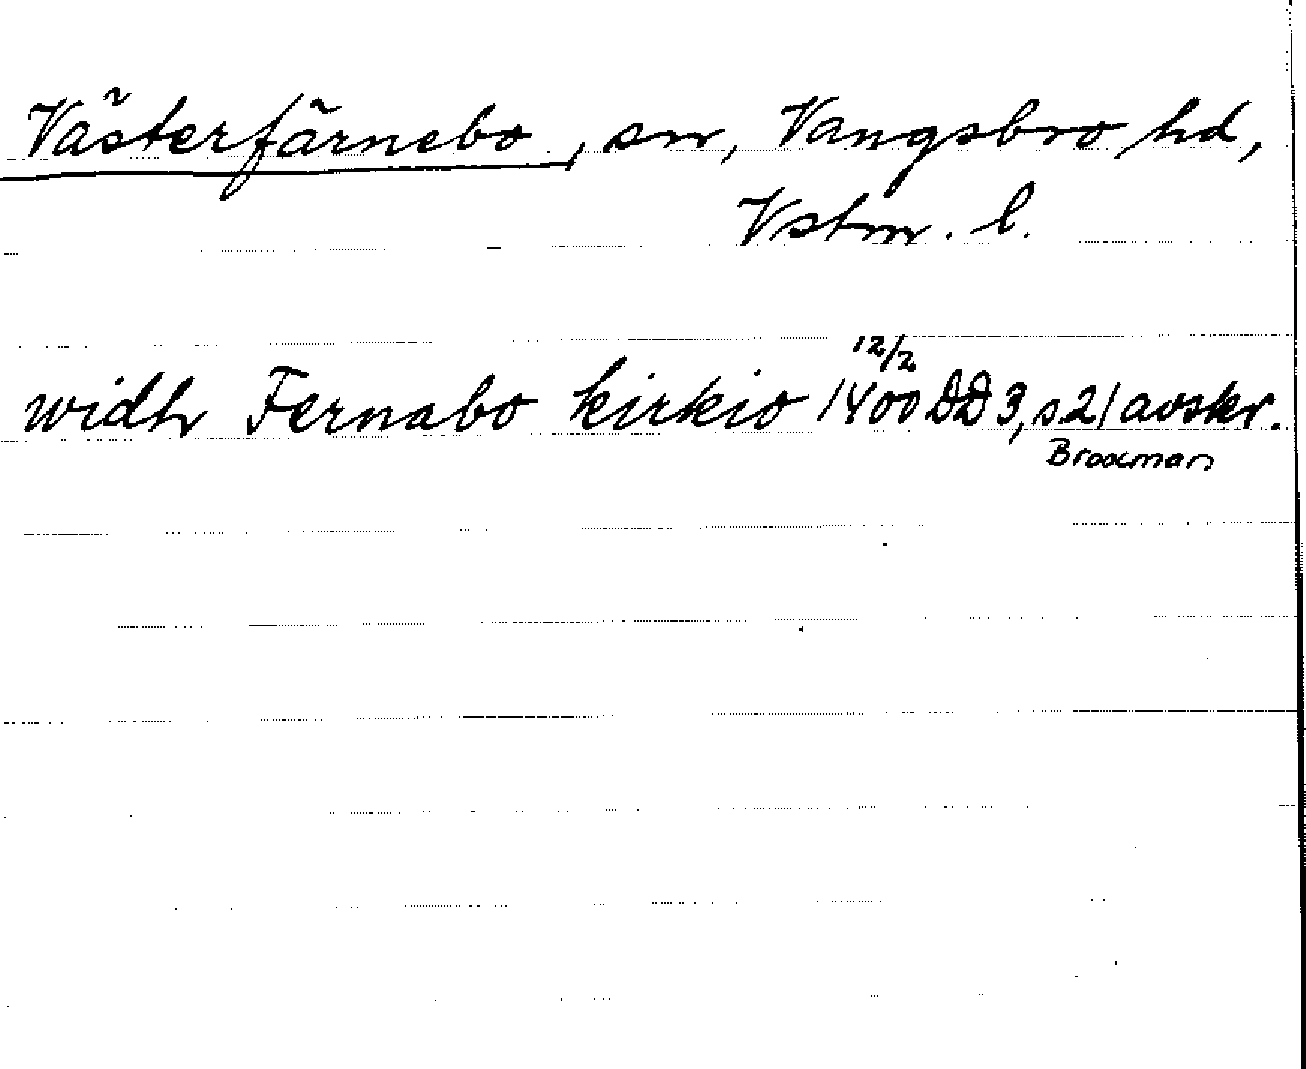 Västerfärnebo, sn, Vangsbro hd,
Vstm. l.
widh Fernabo kirkio 12/2 1400 DD 3, s 21 avskr.
Broocman